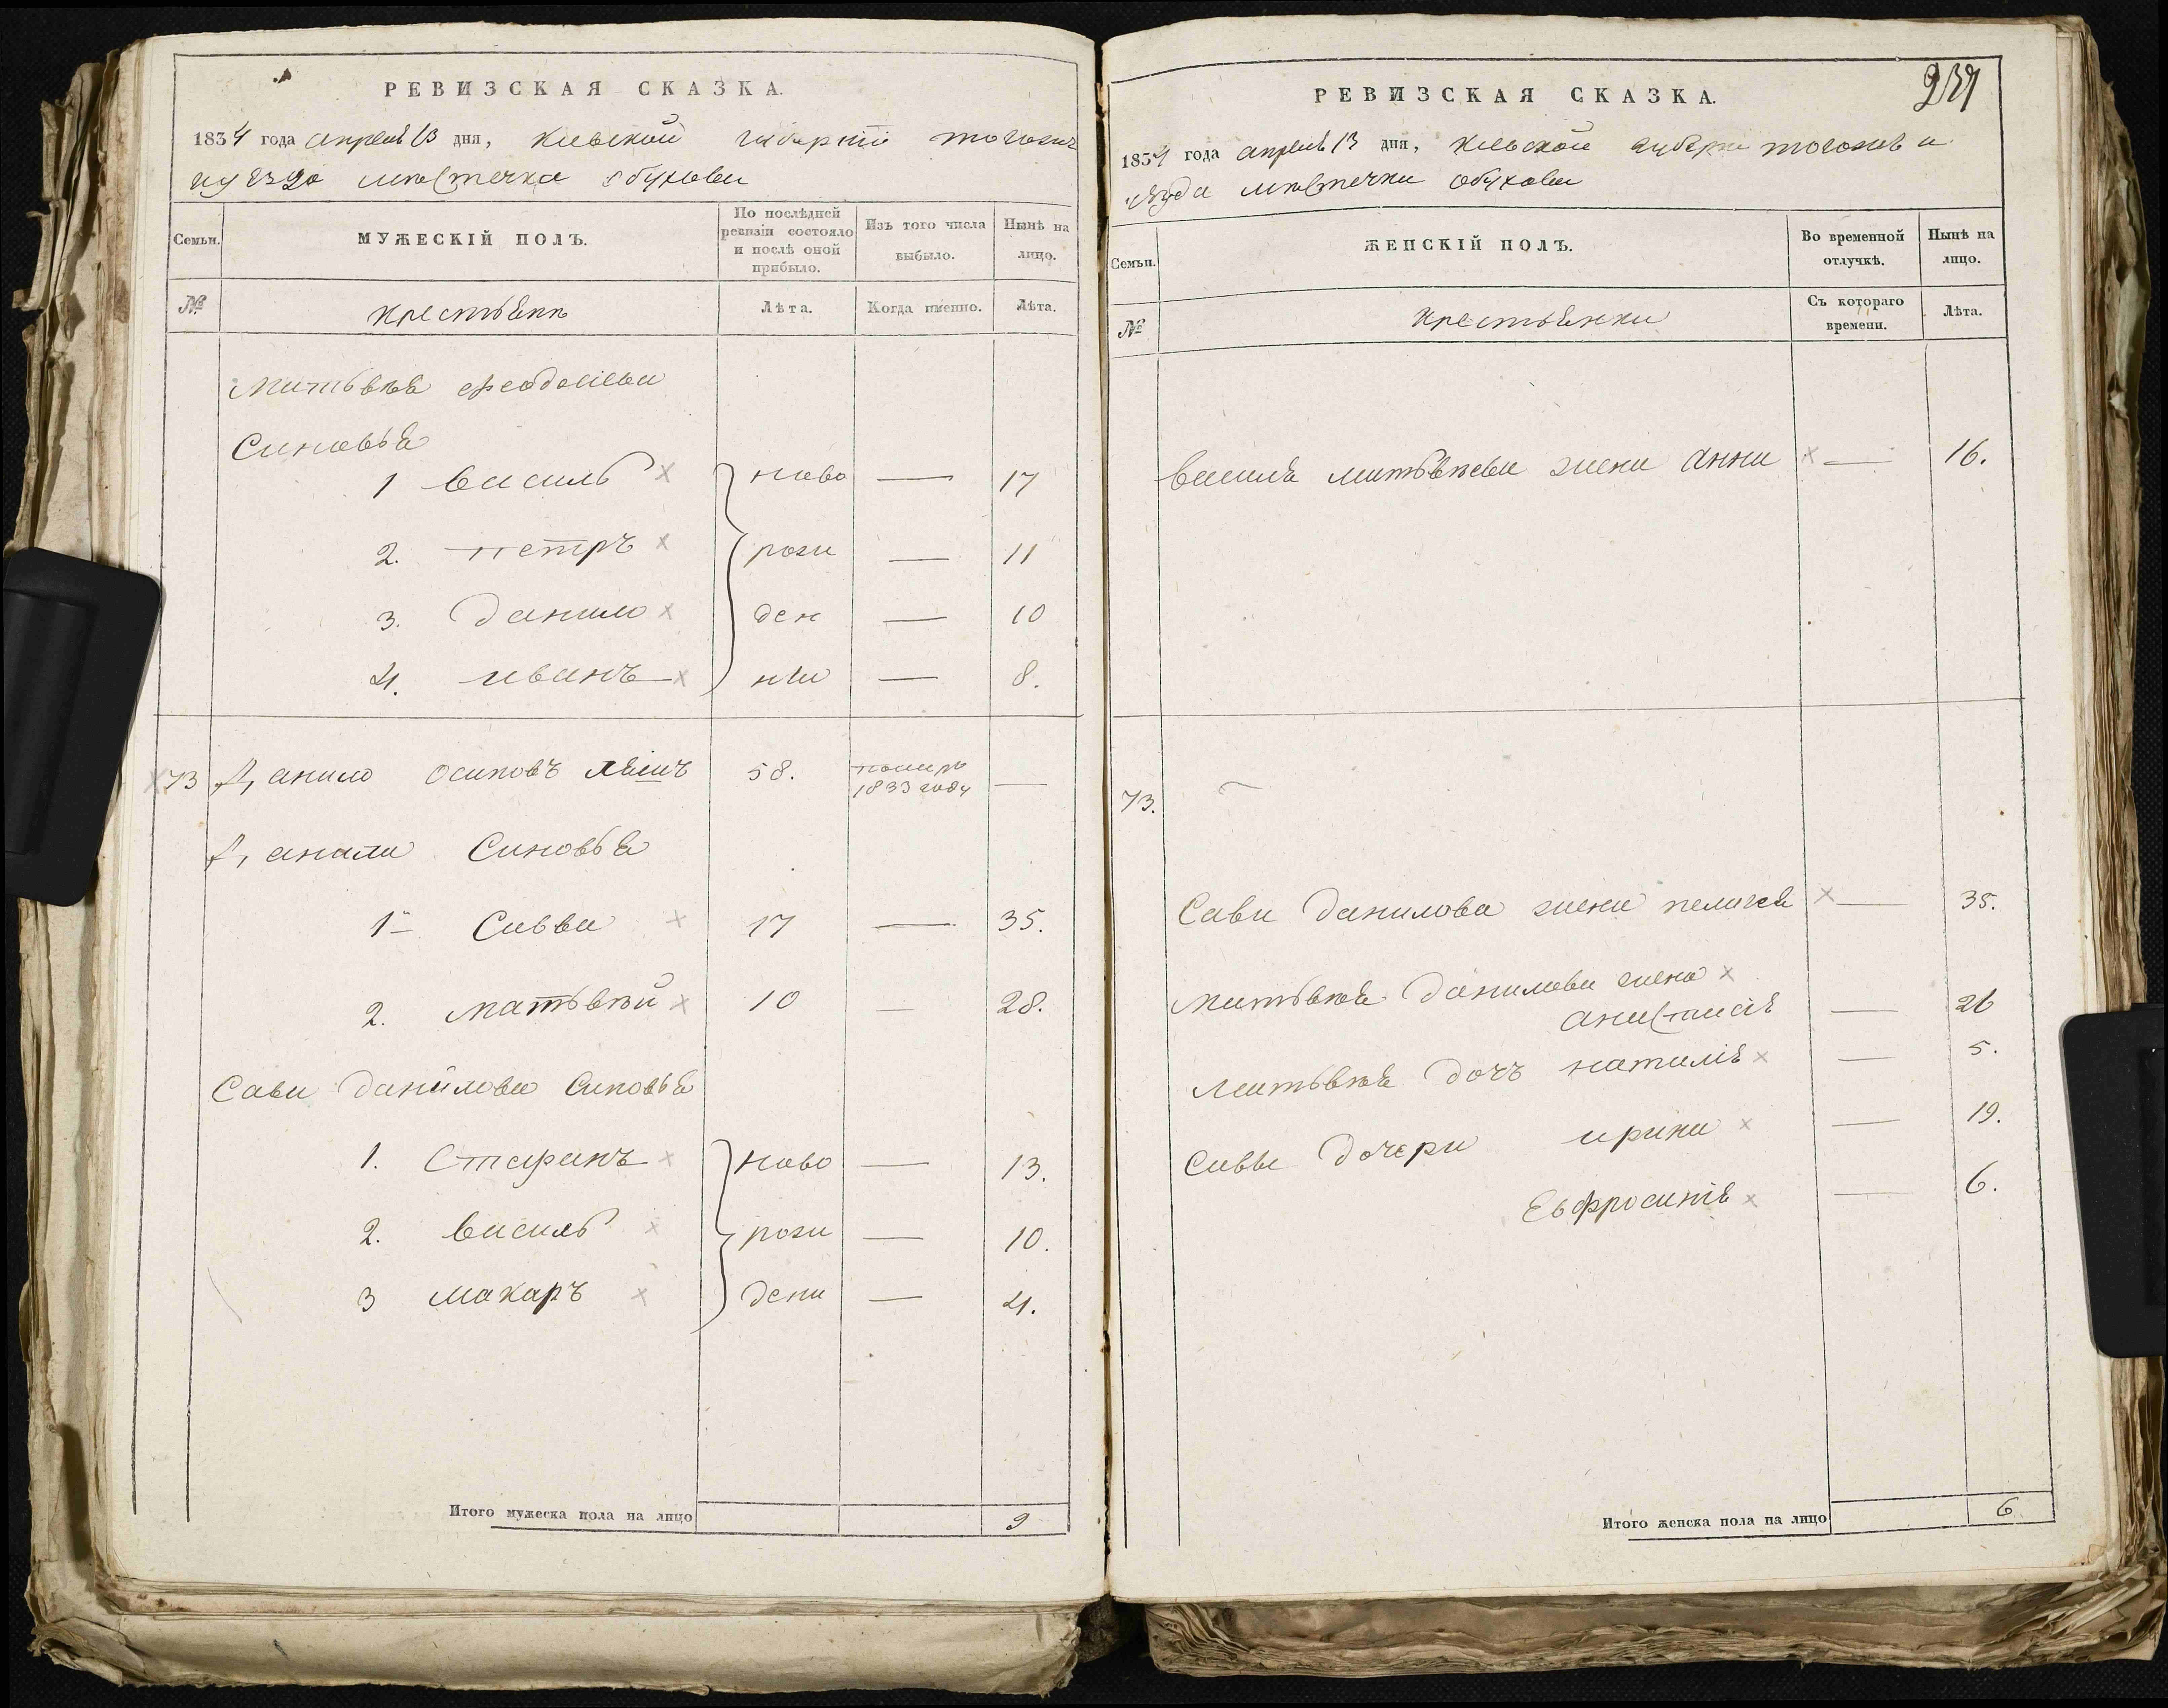 РЕВИЗСКАЯ СКАЗКА.
1834 года апреля 13 дня, Киевской губернии тогожъ
уезда местечка Обухова
Семьи.
МУЖЕСКІЙ ПОЛЪ.
По послѣдней ревизіи состояло и послѣ оной прибыло.
Изъ того числа выбыло.
Нынѣ на лицо.
№
крестьяне
Лѣта.
Когда именно.
Лѣта.
Матвѣя Феодосиева
Синовья
1 Василь ново — 17
2. Петръ рож — 11
3. Данило ден — 10
4. Иванъ — 8.
73 Данило Осиповъ 58. помер 1833 году —
Данила Синовья
1 Савва 17 — 35.
2. Матвѣй 10 — 28.
Сави Данилова Синовья
1. Стефанъ ново — 13.
2. Василь рож — 10.
3 Макаръ дени — 4.
Итого мужеска пола на лицо 9
РЕВИЗСКАЯ СКАЗКА.
1834 года апреля 13 дня, Киевской губернии тогожъ
уезда местечка Обухова
Семьи.
ЖЕНСКІЙ ПОЛЪ.
Во временной отлучкѣ.
Нынѣ на лицо.
№
крестьянки
Съ котораго времени.
Лѣта.
Василя Матвѣева жена Анна — 16.
73.
Сави Данилова жена Пелагея — 35.
Матвѣя Данилова жена
Анастасия — 26
Матвѣя дочъ Наталія — 5.
Саввы дочери Ирина — 19.
Евфросинія — 6.
Итого женска пола на лицо 6